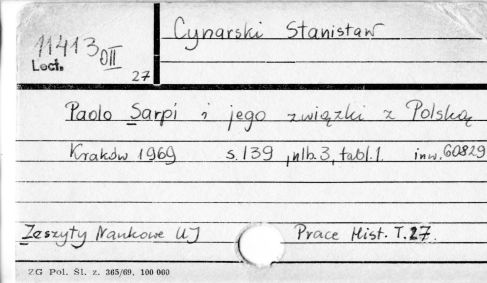 Cynarski Stanisław
11413 OII
Lect.
27
Paolo Sarpi i jego związki z Polską
Kraków 1969 s. 139, nlb. 3, tabl. 1. inw. 60829
Zeszyty Naukowe UJ Prace Hist. T. 27.
ZG Pol. Śl. z. 365/69. 100 000